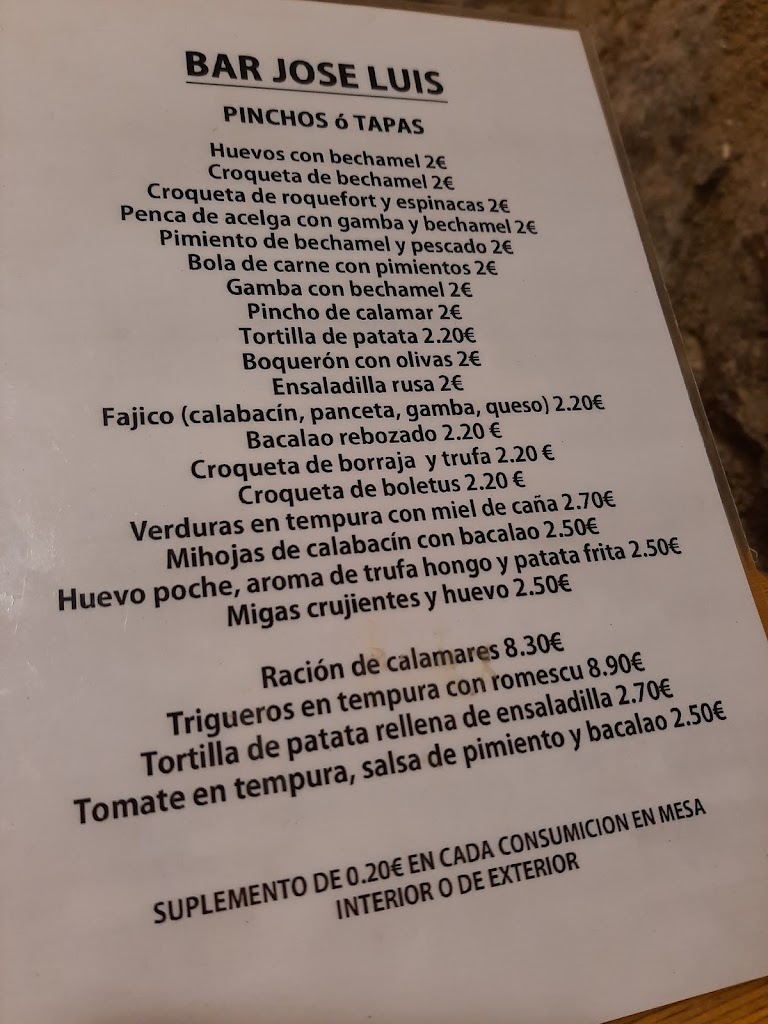 BAR JOSE LUIS
PINCHOS ó TAPAS
Huevos con bechamel 2€
Croqueta de bechamel 2€
Croqueta de roquefort y espinacas 2€
Penca de acelga con gamba y bechamel 2€
Pimiento de bechamel y pescado 2€
Bola de carne con pimientos 2€
Gamba con bechamel 2€
Pincho de calamar 2€
Tortilla de patata 2.20€
Boquerón con olivas 2€
Ensaladilla rusa 2€
Fajico (calabacín, panceta, gamba, queso) 2.20€
Bacalao rebozado 2.20 €
Croqueta de borraja y trufa 2.20 €
Croqueta de boletus 2.20 €
Verduras en tempura con miel de caña 2.70€
Mihojas de calabacín con bacalao 2.50€
Huevo poche, aroma de trufa hongo y patata frita 2.50€
Migas crujientes y huevo 2.50€
Ración de calamares 8.30€
Trigueros en tempura con romescu 8.90€
Tortilla de patata rellena de ensaladilla 2.70€
Tomate en tempura, salsa de pimiento y bacalao 2.50€
SUPLEMENTO DE 0.20€ EN CADA CONSUMICION EN MESA
INTERIOR O DE EXTERIOR